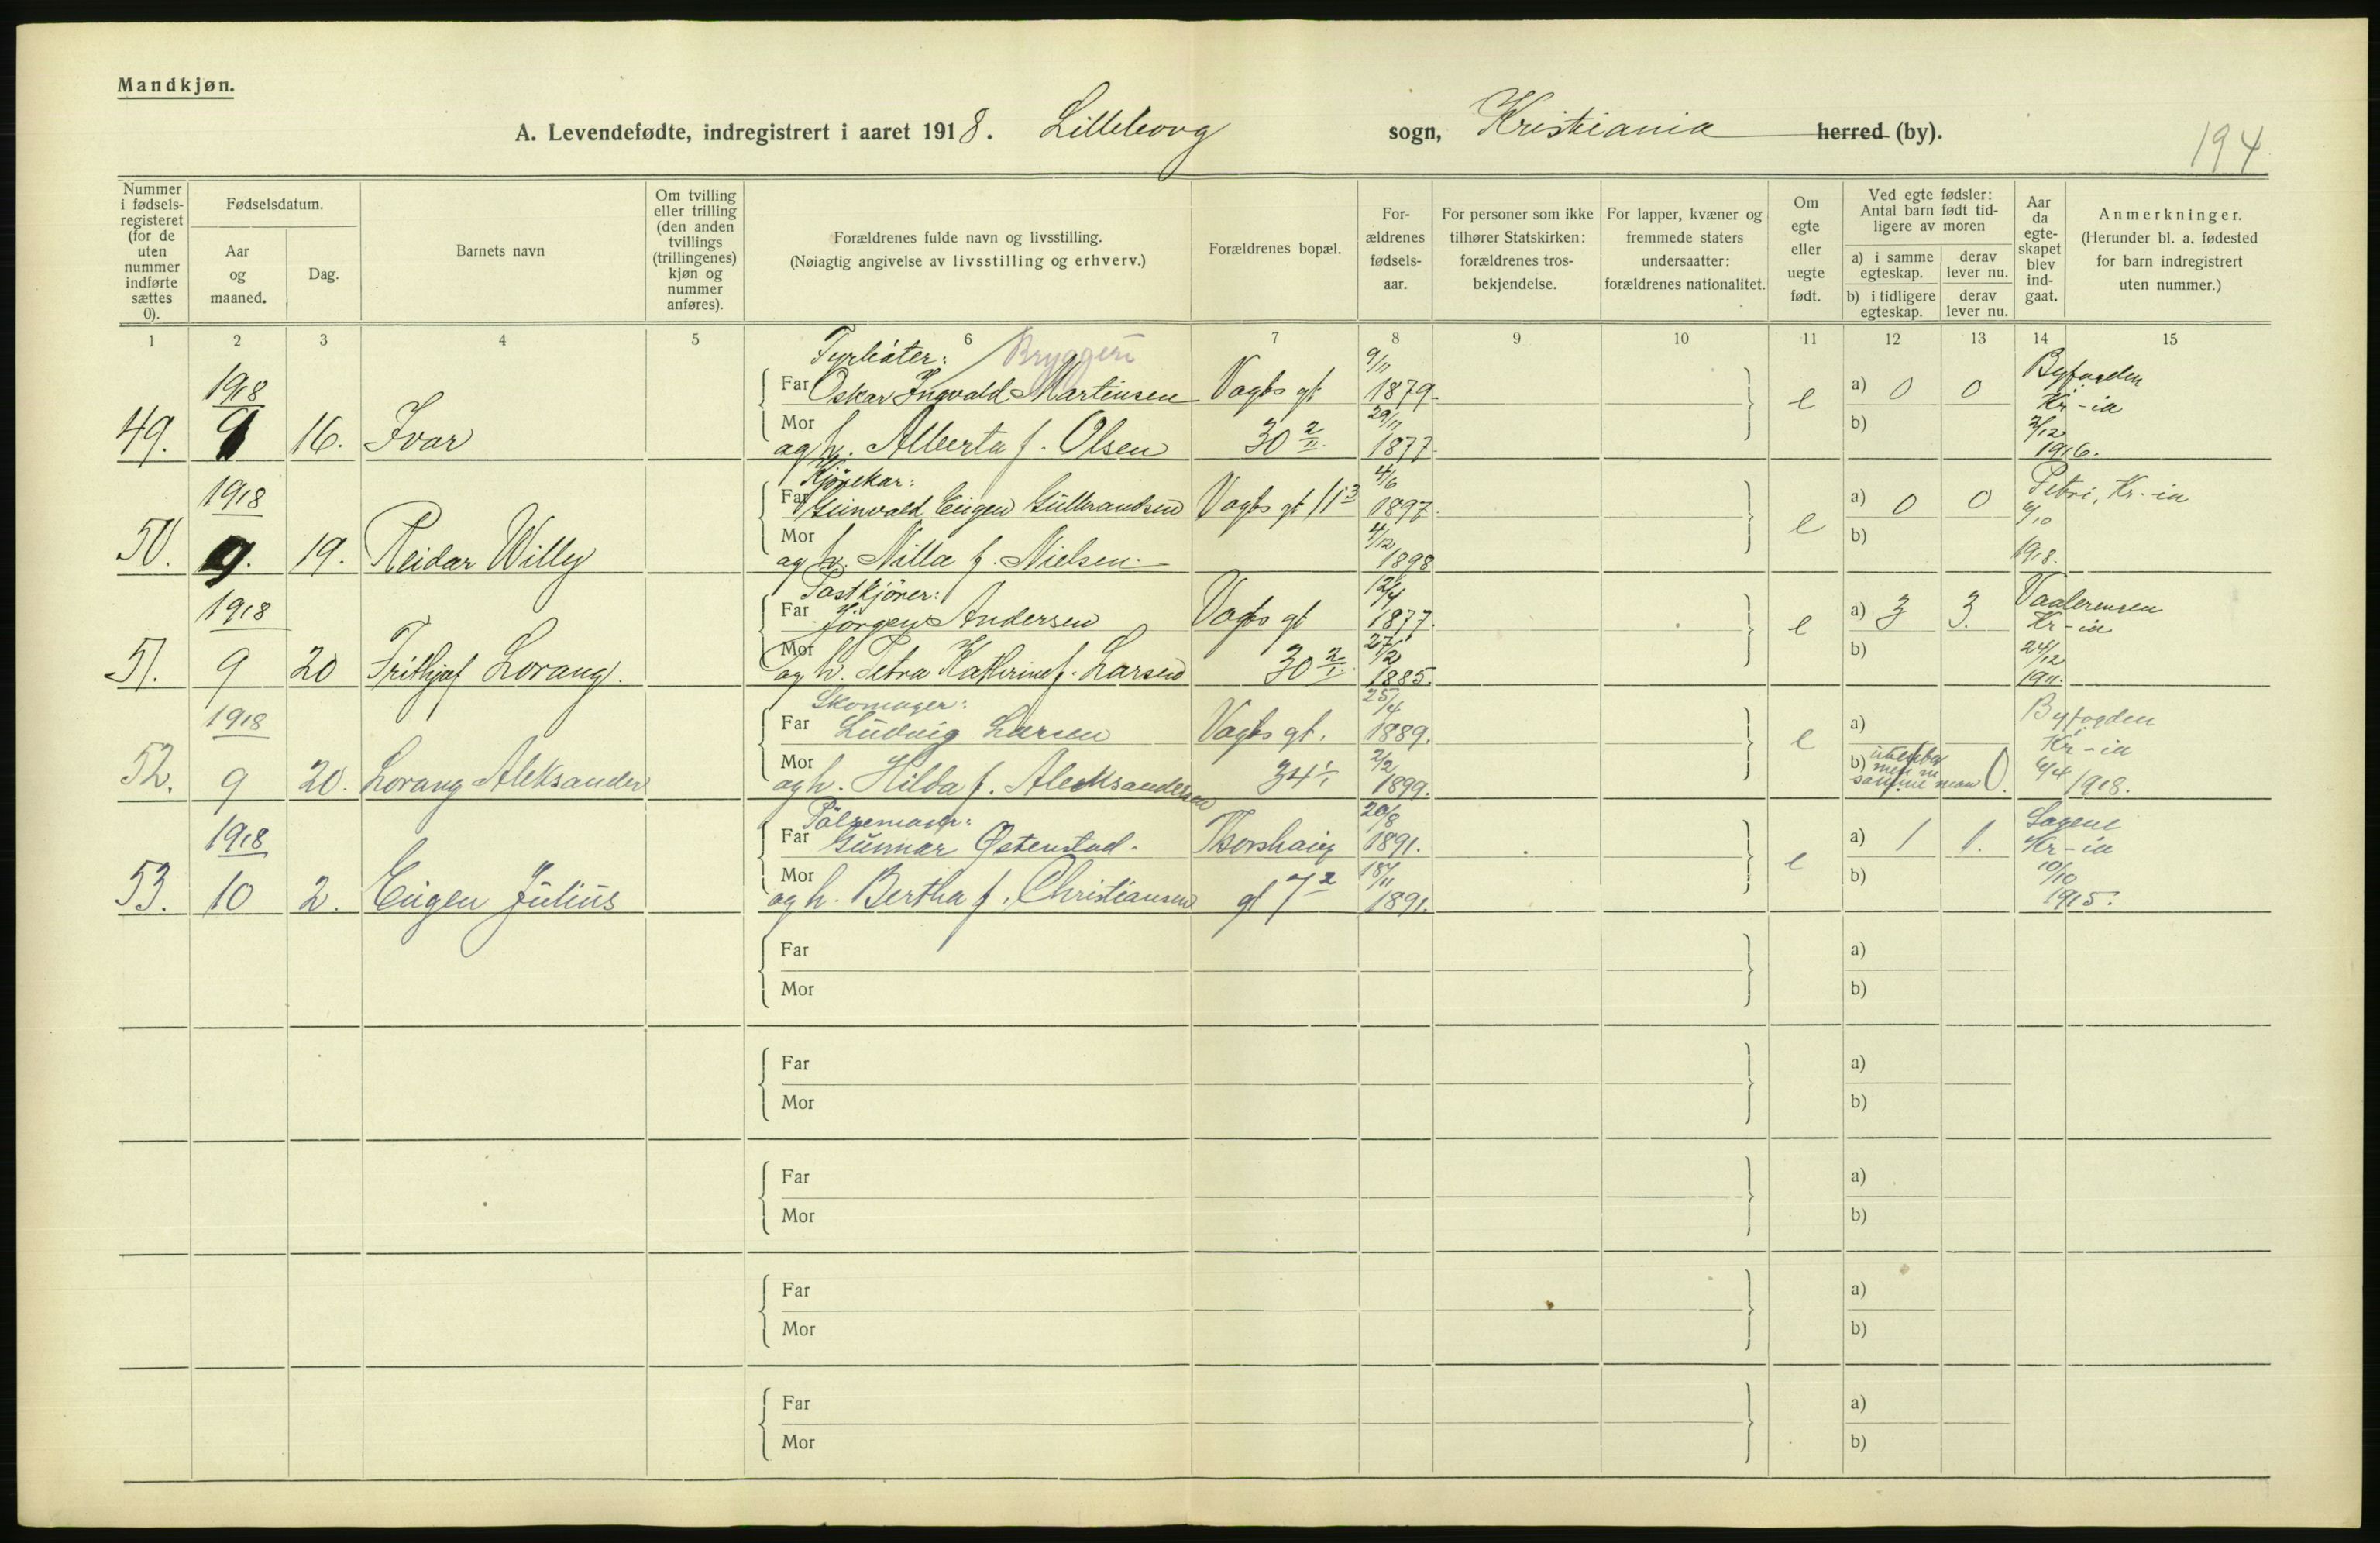 Mandkjøn.
A. Levendefødte, indregistrert i aaret 1918. Lilleborg sogn, Kristiania herred (by).
194
Nummer i fødsels-registeret (for de uten nummer indførte sættes 0).
Fødselsdatum.
Aar og maaned.
Dag.
Barnets navn
Om tvilling eller trilling (den anden tvillings (trillingenes) kjøn og nummer anføres).
Forældrenes fulde navn og livsstilling.
(Nøiagtig angivelse av livsstilling og erhverv.)
Forældrenes bopæl.
For-ældrenes fødsels-aar.
For personer som ikke tilhører Statskirken: forældrenes tros-bekjendelse.
For lapper, kvæner og fremmede staters undersaatter: forældrenes nationalitet.
Om egte eller uegte født.
Ved egte fødsler: Antal barn født tid-ligere av moren
a) i samme egteskap.
derav lever nu.
b) i tidligere egteskap.
derav lever nu.
Aar da egte-skapet blev ind-gaat.
Anmerkninger.
(Herunder bl. a. fødested for barn indregistrert uten nummer.)
1 2 3 4 5 6 7 8 9 10 11 12 13 14 15
Fyrbøter: Bryggeri
1918 Far Oskar Ingvald Martinsen Vogts gt 9/11 1879. e a) 0 0 Byfogden Kr-ia
49. 9 16. Ivar Mor og h. Alberta f. Olsen 30 2/II. 29/11 1877. b) 2/12 1916.
Kjørekar:
1918 Far Gunvald Eugen Gulbrandsen Vogts gt 11 3 4/6 1897. e a) 0 0 Petri, Kr.-ia
50. 9. 19. Reidar Willy Mor og h. Nilla f. Nielsen. 4/12 1898 b) 6/10 1918.
Postkjører:
1918 Far Jørgen Andersen Vogts gt 12/4 1877. e a) 3 3. Vaalerengen Kr-ia
51. 9 20 Frithjof Lorang. Mor og h. Petra Kathrine f. Larsen 30 2/I. 27/2 1885. b) 24/12 1911.
Skomager:
1918 Far Ludvig Larsen Vogts gt. 25/4 1889. e a) Byfogden i Kr-ia
52. 9 20. Lorang Aleksander Mor og h. Hilda f. Aleksandersen 34 1/I 2/2 1899. b) samme man 0. 6/4 1918.
Pølsemaker:
1918 Far Gunnar Østenstad. Thorshaug 20/8 1891. e a) 1 1. Sagene Kr-ia
53. 10 2. Eugen Julius Mor og h. Bertha f. Christiansen gt 7 2 18/11 1891. b) 10/10 1915.
Far a)
Mor b)
Far a)
Mor b)
Far a)
Mor b)
Far a)
Mor b)
Far a)
Mor b)